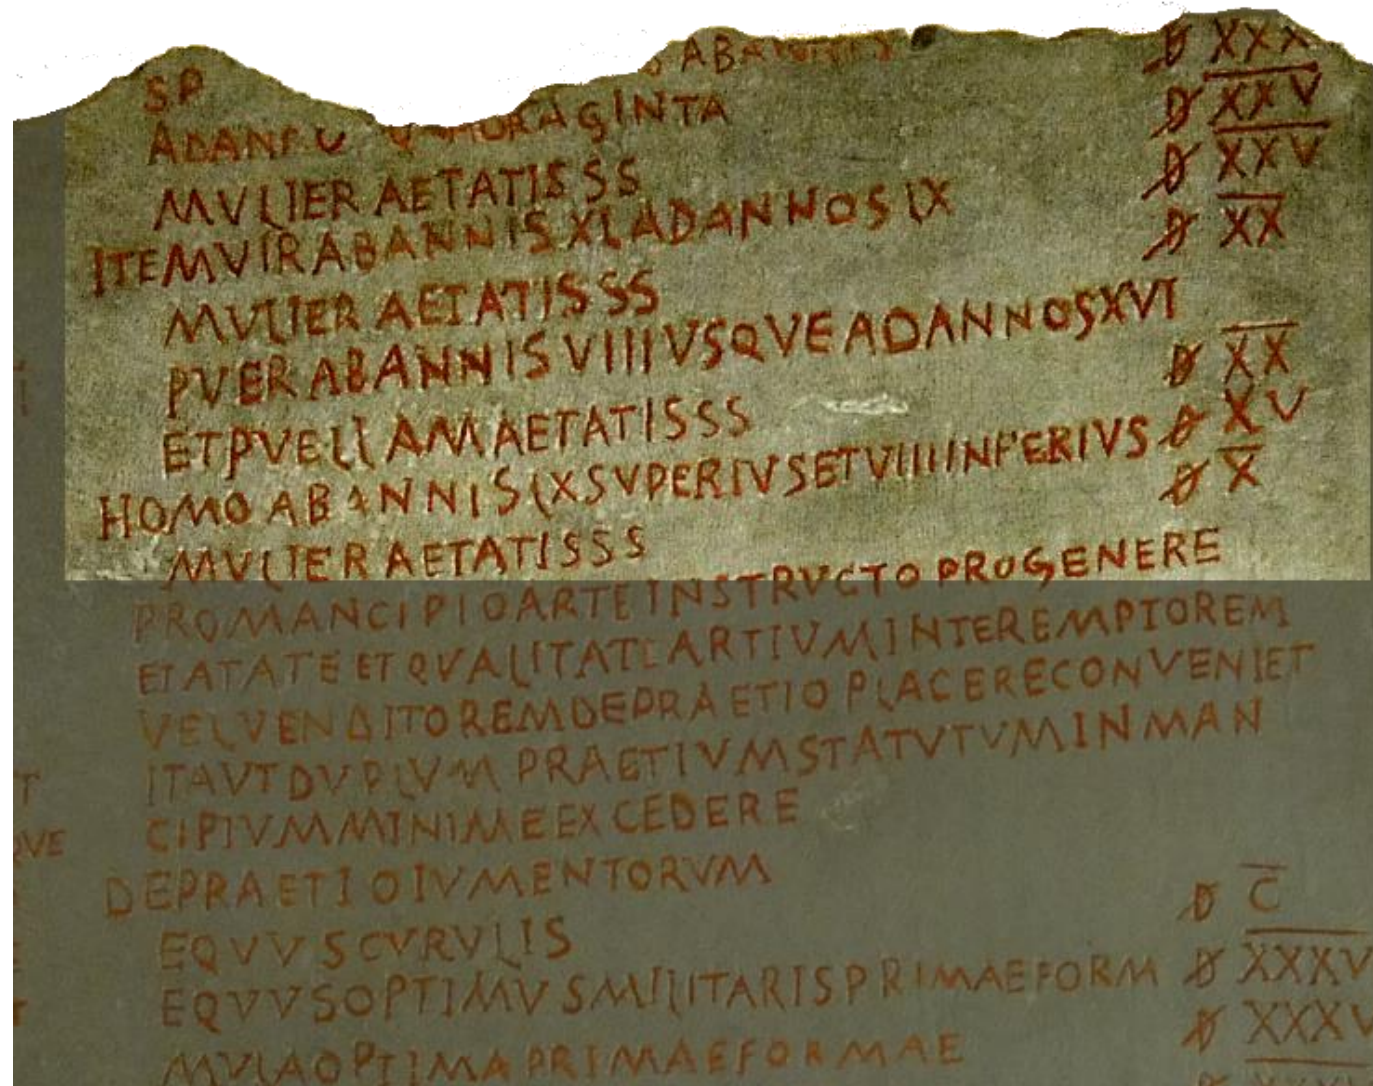 SP ABANNIS
QUADRAGINTA 𐆖 XXX
MVLIER AETATIS SS 𐆖 XXV
ITEM VIR AB ANNIS XL AD ANNOS LX 𐆖 XXV
MVLIER AETATIS SS 𐆖 XX
PVER AB ANNIS VIIII VSQVE AD ANNOS XVI
ET PVELLAM AETATIS SS 𐆖 XX
HOMO AB ANNIS LX SVPERIVS ET VIIII INFERIVS 𐆖 XV
MVLIER AETATIS SS 𐆖 X
PRO MANCIPIO ARTE INSTRVCTO PRO GENERE
ET ATATE ET QVALITATE ARTIVM INTER EMPTOREM
VEL VENDITOREM DE PRAETIO PLACERE CONVENIET
ITA VT DVPLVM PRAETIVM STATVTVM IN MAN
CIPIVM MINIME EXCEDERE
DE PRAETIO IVMENTORVM
EQVVS CVRVLIS 𐆖 C
EQVVS OPTIMVS MILITARIS PRIMAE FORM 𐆖 XXXV
MVLA OPTIMA PRIMAE FORMAE 𐆖 XXXV